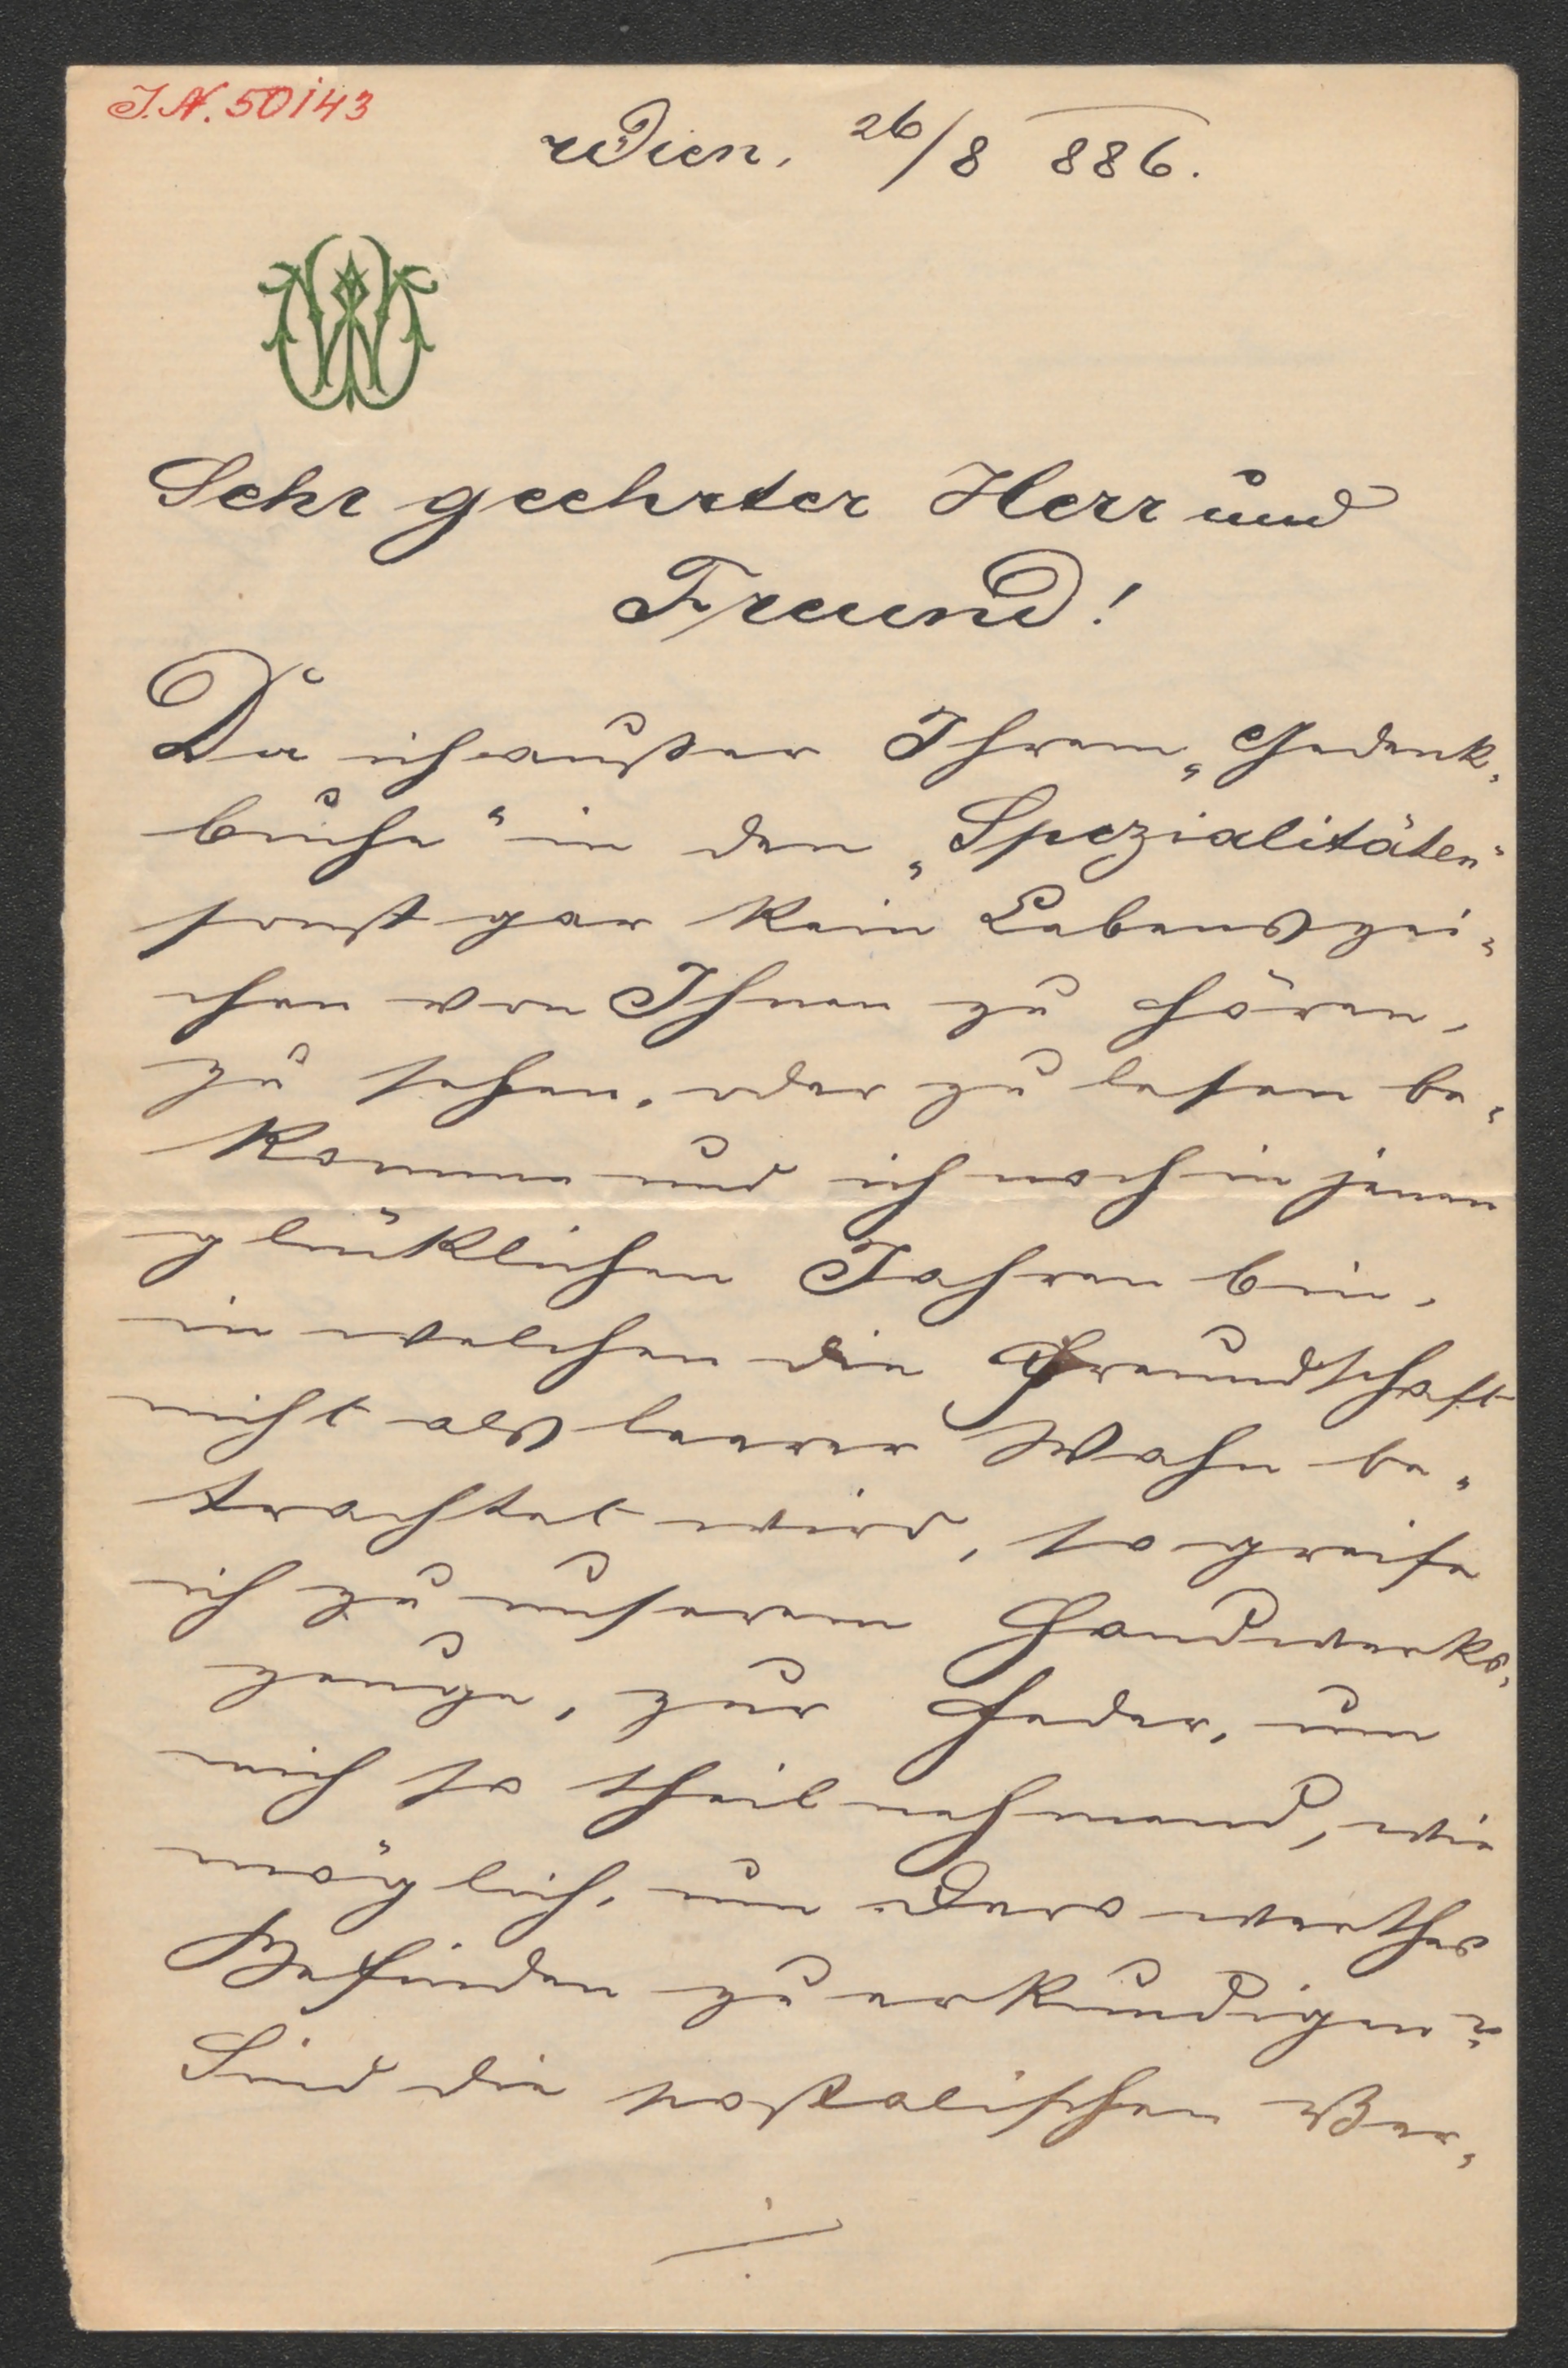 I.N. 50143
Wien, 26/8 886.
Sehr geehrter Herr und
Freund!
Da ich außer Ihrem „Gedenk-
buche" in den „Spezialitäten"
sonst gar kein Lebenszei-
chen von Ihnen zu hören,
zu sehen, oder zu lesen be-
komme und ich noch in jenen
glüklichen Jahren bin,
in welchen die Freundschaft
nicht als leerer Wahn be-
trachtet wird, so greife
ich zu unserem Handwerks-
zeuge, zur Feder, um
mich so theilnehmend, wie
möglich, um Dero werthes
Befinden zu erkundigen?
Sind die postalischen Ver-
./.